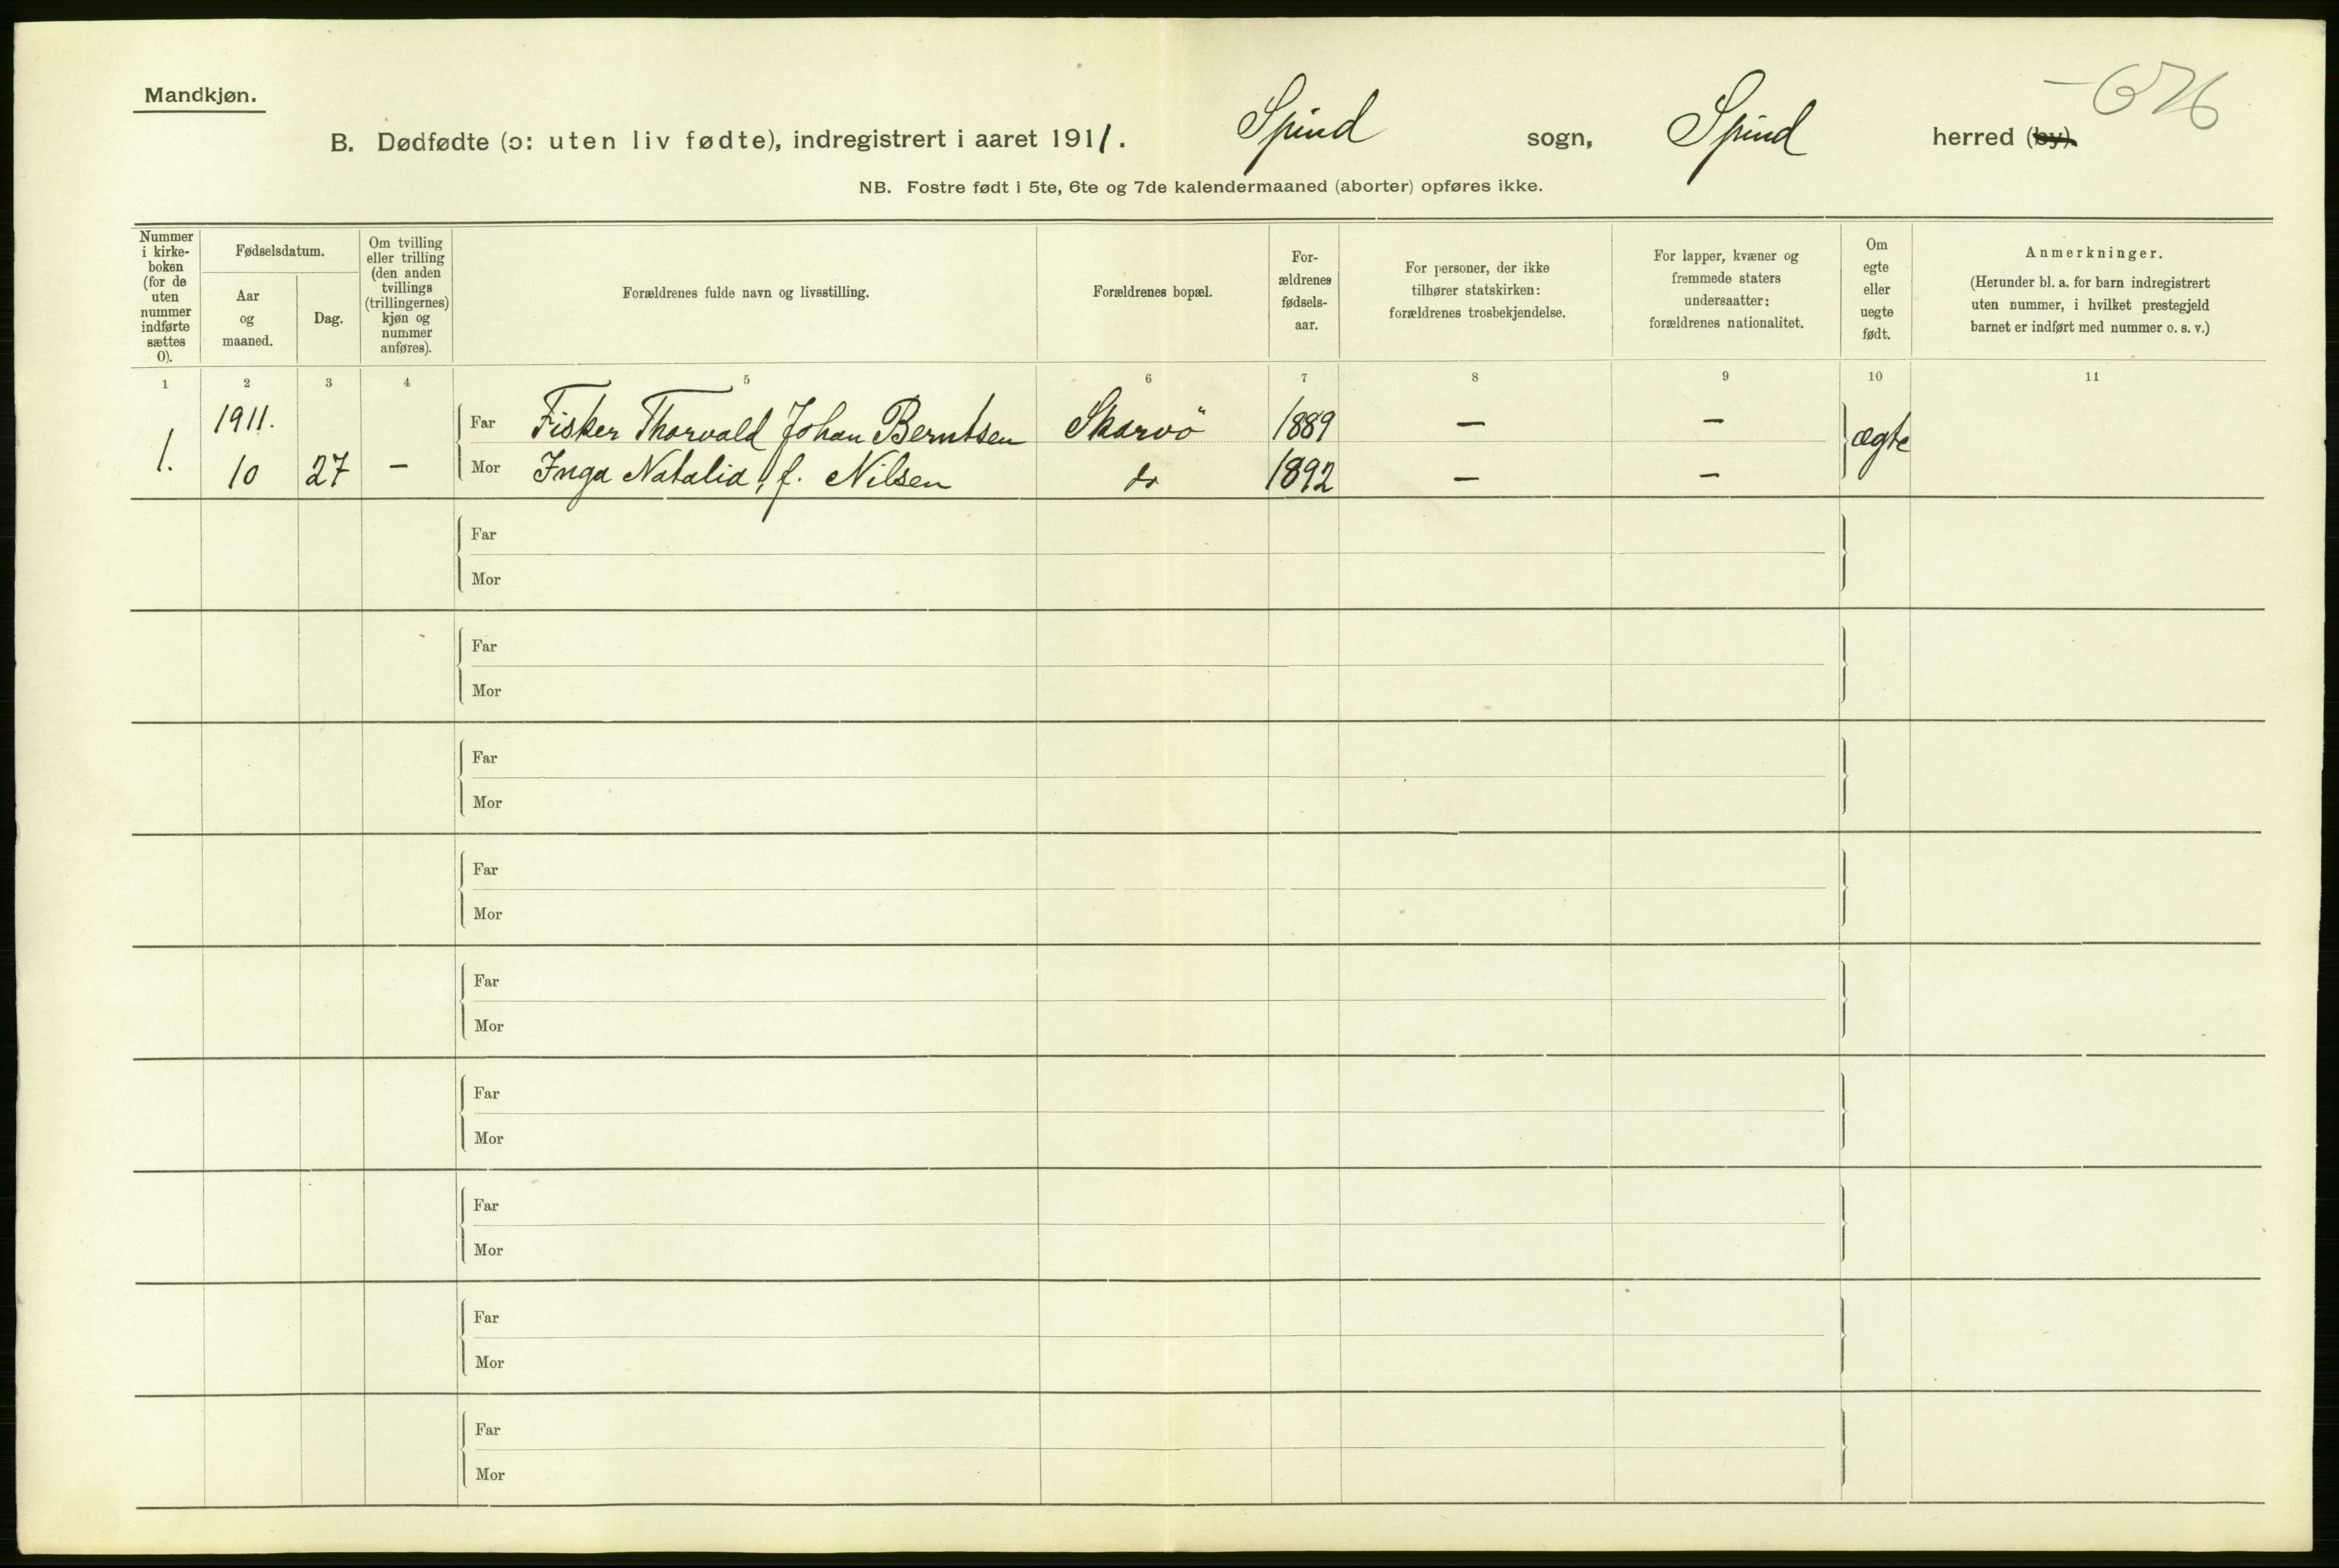 Mandkjøn.
B. Dødfødte (ɔ: uten liv fødte), indregistrert i aaret 1911. Spind sogn, Spind herred (by).
NB. Fostre født i 5te, 6te og 7de kalendermaaned (aborter) opføres ikke.
Nummer
i kirke-
boken
(for de
uten
nummer
indførte
sættes
0).
Fødselsdatum.
Aar
og
maaned.
Dag.
Om tvilling
eller trilling
(den anden
tvillings
(trillingernes)
kjøn og
nummer
anføres).
Forældrenes fulde navn og livsstilling.
Forældrenes bopæl.
For-
ældrenes
fødsels-
aar.
For personer, der ikke
tilhører statskirken:
forældrenes trosbekjendelse.
For lapper, kvæner og
fremmede staters
undersaatter:
forældrenes nationalitet.
Om
egte
eller
uegte
født.
Anmerkninger.
(Herunder bl. a. for barn indregistrert
uten nummer, i hvilket prestegjeld
barnet er indført med nummer o. s. v.)
1 2 3 4 5 6 7 8 9 10 11
1911. Far Fisker Thorvald Johan Berntsen Skarvö 1889 — — ægte
1. 10 27 — Mor Inga Natalia, f. Nilsen do 1892 — —
Far
Mor
Far
Mor
Far
Mor
Far
Mor
Far
Mor
Far
Mor
Far
Mor
Far
Mor
Far
Mor